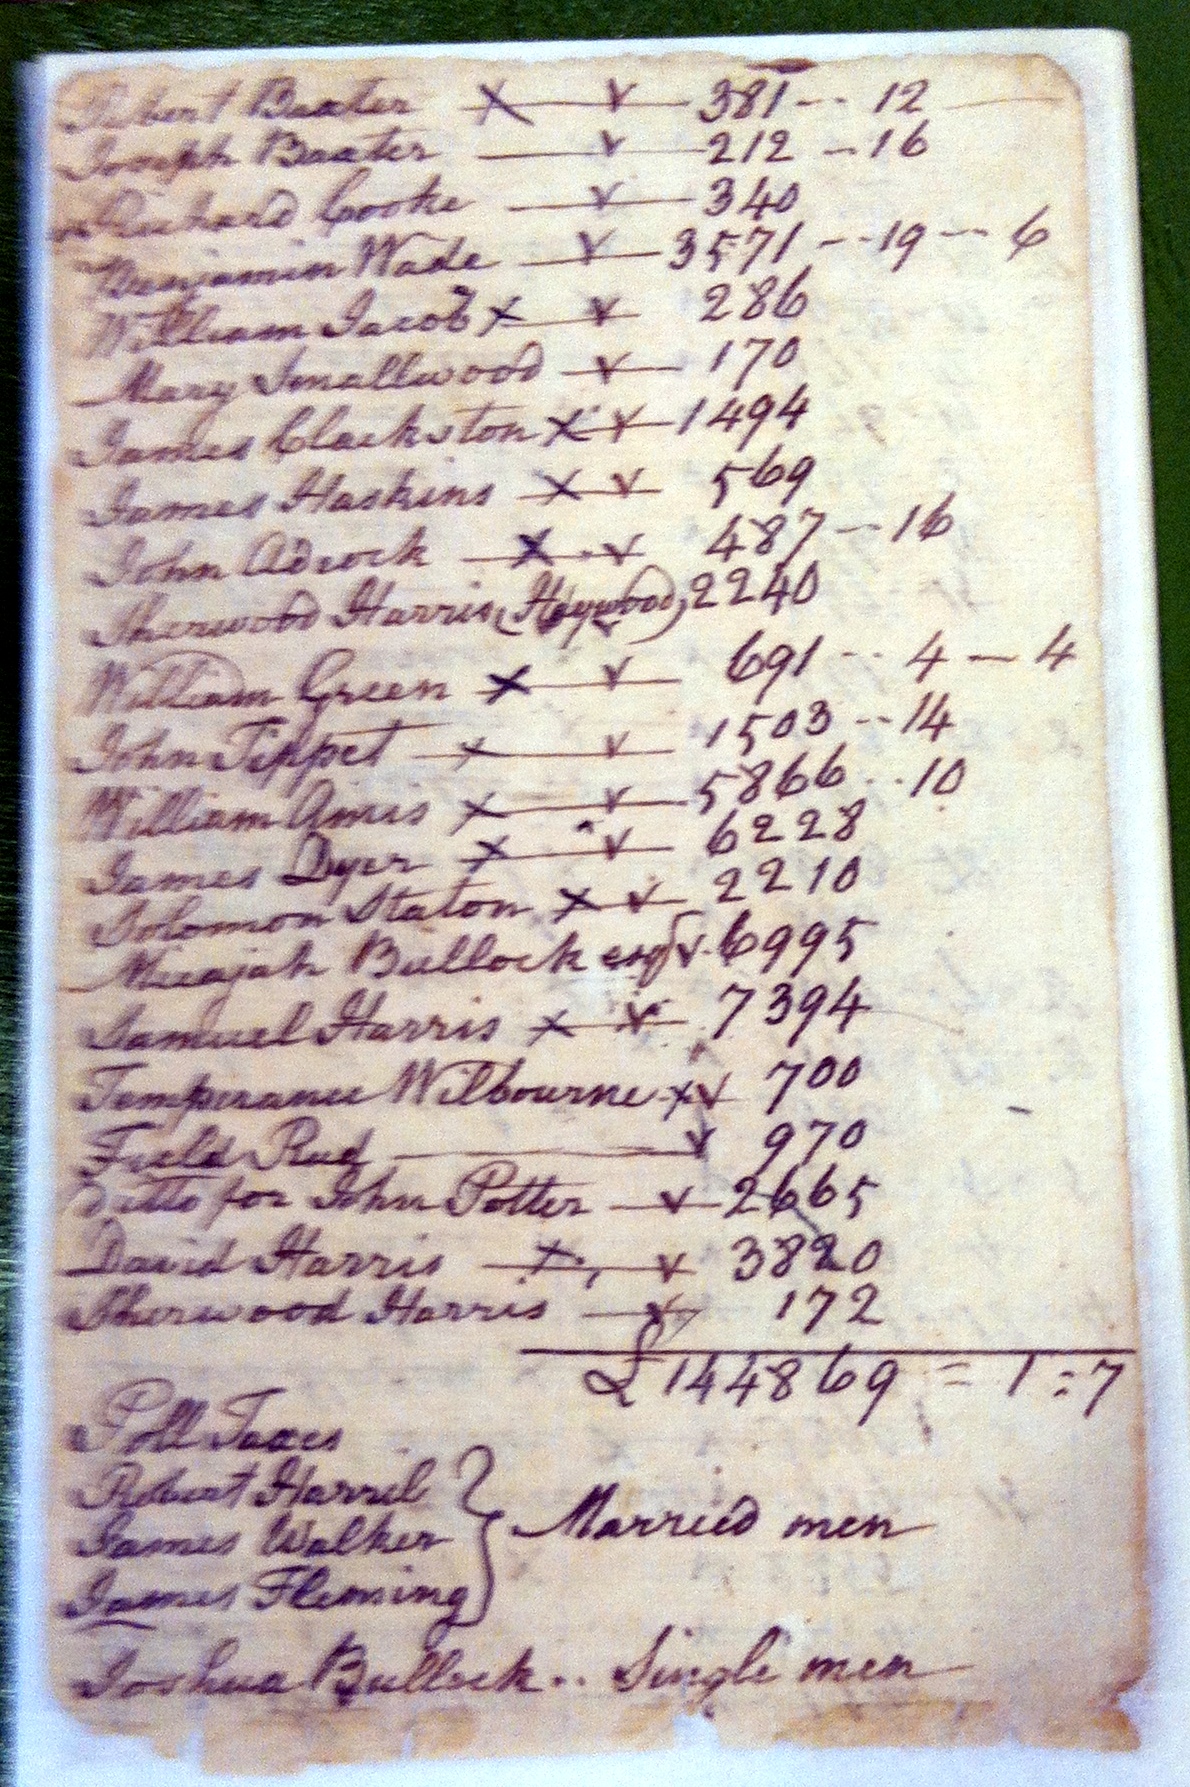 Robert Baxter x v 381 -- 12
Joseph Baxter v 212 - 16
Richard Cooke v 340
Benjamin Wade v 3571 -- 19 -- 6
William Jacob x v 286
Mary Smallwood v 170
James Clackston x v 1494
James Haskins x v 569
John Adcock x v 487 - 16
Sherwood Harris (Haywood) v 2240
William Green x v 691 -- 4 - 4
John Tippet x v 1503 -- 14
William Amis x v 5866 .. 10
James Dyer x v 6228
Solomon Staton x v 2210
Micajah Bullock esqr v 6995
Samuel Harris x v 7394
Temperance Wilbourne x v 700
Field Rud v 970
Ditto for John Potter v 2665
David Harris x v 3820
Sherwood Harris 172
£144869 = 1 : 7
Poll Taxes
Robert Harril
James Walker } Married men
James Fleming
Joshua Bullock .. Single men